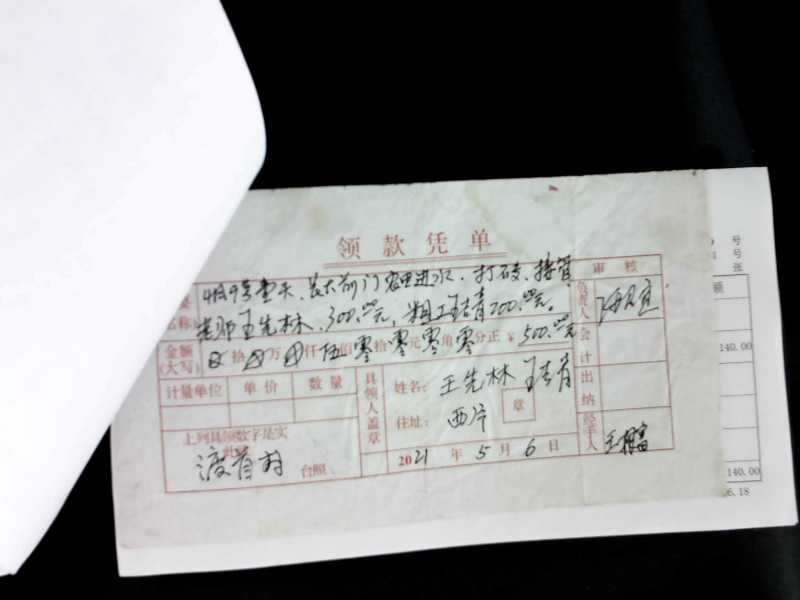 领款凭单
审核
号
号
张
额
4月9号壹天、 前门 进水、打砖、接管
名称 老师王先林、300.元、粗工王 青200.元.
负责人
金额(大写) 拾 万 仟伍佰零拾零元零角零分正 ¥ 500.元
会计
140.00
计量单位 单价 数量
具领人盖章
姓名: 王先林 王 青
出纳
住址: 西片
章
上列具领数字是实
此
渡 村 台照
2021 年 5 月 6 日
经手人
140.00
6.18